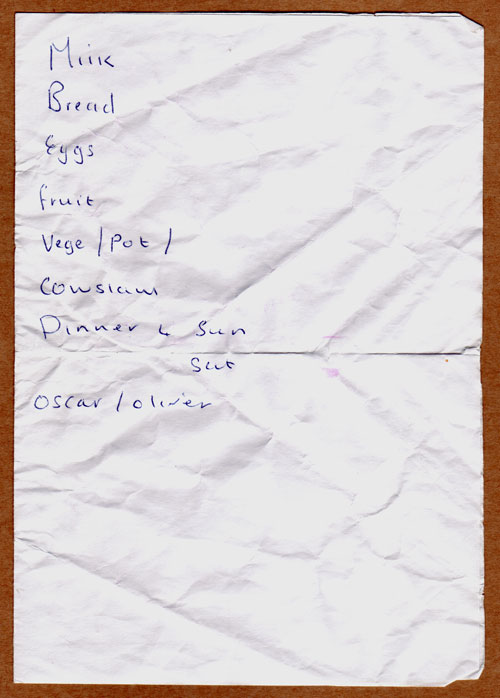 Milk
Bread
Eggs
fruit
Vege / Pot /
Cowslaw
Dinner 4 Sun
Sat
Oscar / olivier